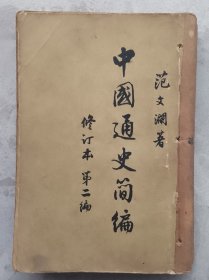 范文瀾著
中國通史簡編
修订本 第二編